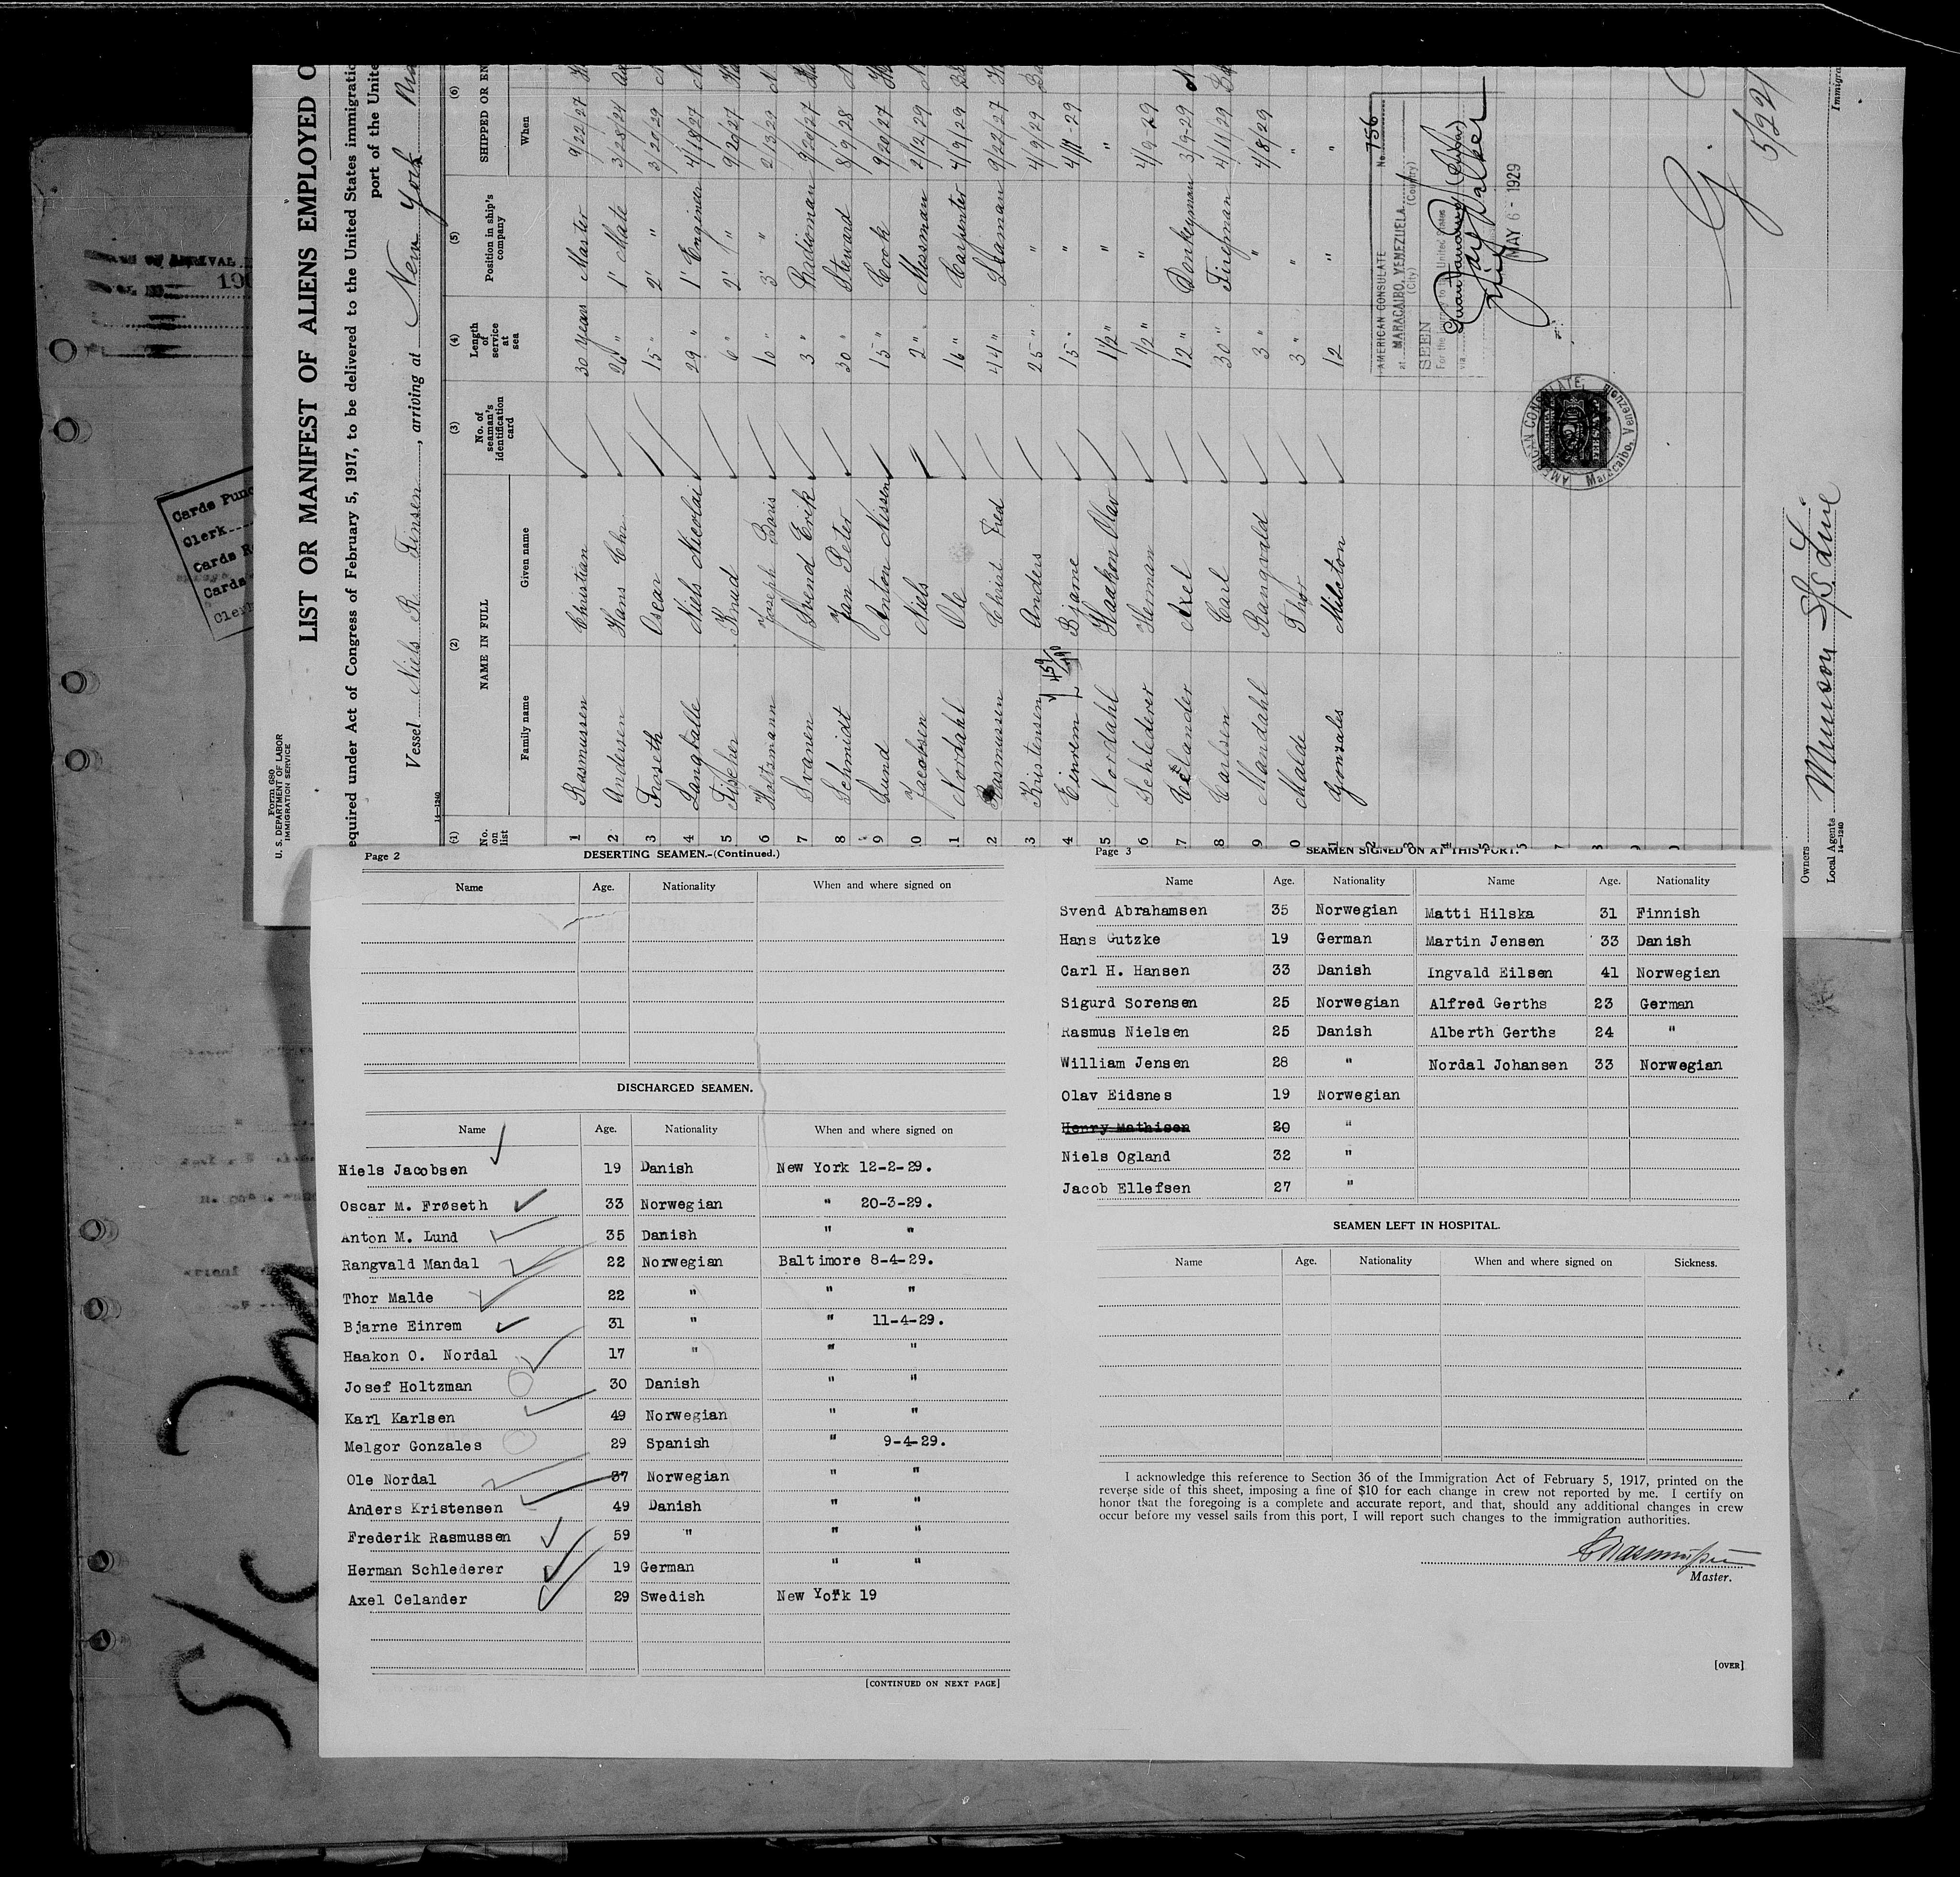 Form 680
U. S. DEPARTMENT OF LABOR
IMMIGRATION SERVICE
LIST OR MANIFEST OF ALIENS EMPLOYED O
equired under Act of Congress of February 5, 1917, to be delivered to the United States immigratio
port of the Unite
Vessel Niels R Finsen, arriving at New York
14—1240
(1) (2) (3) (4) (5) (6)
No. on list NAME IN FULL No. of seaman's identification card Length of service at sea Position in ship's company SHIPPED OR EN
Family name Given name When
1 Rasmussen Christian 30 years Master 9/22/27
2 Andersen Hans Chr. " 1' Mate 3/28/24
3 Froseth Oscar 15 " 2' " 3/20/29
4 Langballe Niels Nicolai 29 " 1' Engineer 4/18/27
5 Fischer Knud 6 " 2' " 9/20/27
6 Holtzmann Joseph Boris 10 " 3' " 2/13/29
7 Svanen Svend Erik 3 " Radioman 9/20/27
8 Schmidt Jan Peter 30 " Steward 8/9/28
9 Lund Anton Nissen 15 " Cook 9/20/27
0 Jacobsen Niels 2 " Messman 2/12/29
1 Nordahl Ole 16 " Carpenter 4/9/29
2 Rasmussen Christ Fred 44 " Seaman 9/22/27
3 Kristensen Anders 25 " " 4/9/29
4 Einrem Bjarne 15 " " 4/11-29
5 Nordahl Haakon Olav 1 1/2 " " "
6 Schlederer Herman 1/2 " " 4/9-29
7 Celander Axel 12 " Donkeyman 3/9-29
8 Carlsen Carl 30 " Fireman 4/11/29
9 Mandahl Rangvald 3 " " 4/8/29
0 Malde Thor 3 " " "
1 Gonzales Mileton 12 " "
AMERICAN CONSULATE No. 756
at MARACAIBO, VENEZUELA
(City) (Country)
SEEN
For the journey to the United States
via Guantanamo (Cuba)
Jay Walker
MAY 6 - 1929
AMERICAN CONSULATE
Maracaibo, Venezuela
5/22/
Owners
Munson SS Line
Local Agents
14—1240
Immigra
Cards Punc
Clerk
Cards R
Cards
Clerk
Page 2
DESERTING SEAMEN.-(Continued.)
Name Age. Nationality When and where signed on
DISCHARGED SEAMEN.
Name Age. Nationality When and where signed on
Niels Jacobsen 19 Danish New York 12-2-29.
Oscar M. Frøseth 33 Norwegian " 20-3-29.
Anton M. Lund 35 Danish " "
Rangvald Mandal 22 Norwegian Baltimore 8-4-29.
Thor Malde 22 " " "
Bjarne Einrem 31 " " 11-4-29.
Haakon O. Nordal 17 " " "
Josef Holtzman 30 Danish " "
Karl Karlsen 49 Norwegian " "
Melgor Gonzales 29 Spanish " 9-4-29.
Ole Nordal 37 Norwegian " "
Anders Kristensen 49 Danish " "
Frederik Rasmussen 59 " " "
Herman Schlederer 19 German " "
Axel Celander 29 Swedish New York 19
[CONTINUED ON NEXT PAGE]
Page 3
SEAMEN SIGNED ON AT THIS PORT.
Name Age. Nationality Name Age. Nationality
Svend Abrahamsen 35 Norwegian Matti Hilska 31 Finnish
Hans Gutzke 19 German Martin Jensen 33 Danish
Carl H. Hansen 33 Danish Ingvald Eilsen 41 Norwegian
Sigurd Sorensen 25 Norwegian Alfred Gerths 23 German
Rasmus Nielsen 25 Danish Alberth Gerths 24 "
William Jensen 28 " Nordal Johansen 33 Norwegian
Olav Eidsnes 19 Norwegian
Henry Mathisen 20 "
Niels Ogland 32 "
Jacob Ellefsen 27 "
SEAMEN LEFT IN HOSPITAL.
Name Age. Nationality When and where signed on Sickness.
I acknowledge this reference to Section 36 of the Immigration Act of February 5, 1917, printed on the
reverse side of this sheet, imposing a fine of $10 for each change in crew not reported by me. I certify on
honor that the foregoing is a complete and accurate report, and that, should any additional changes in crew
occur before my vessel sails from this port, I will report such changes to the immigration authorities.
C Rasmussen
Master.
[OVER]